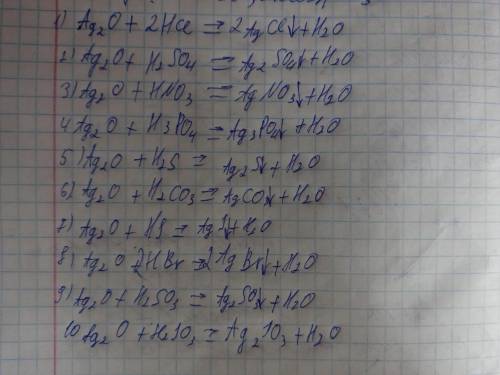 1) Ag₂O + 2HCl = 2AgCl↓ + H₂O
2) Ag₂O + H₂SO₄ = Ag₂SO₄↓ + H₂O
3) Ag₂O + HNO₃ = AgNO₃↓ + H₂O
4 Ag₂O + H3PO₄ = Ag₃PO₄↓ + H₂O
5) Ag₂O + H₂S = Ag₂S↓ + H₂O
6) Ag₂O + H₂CO₃ = AgCO₃↓ + H₂O
7) Ag₂O + HI = AgI↓ + H₂O
8) Ag₂O 2HBr = 2AgBr↓ + H₂O
9) Ag₂O + H₂SO₃ = Ag₂SO₃↓ + H₂O
10 Ag₂O + H₂SO₃ = Ag₂SO₃ + H₂O